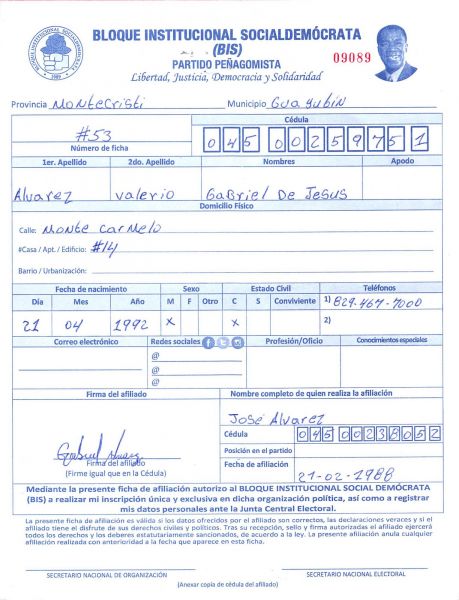 BLOQUE INSTITUCIONAL SOCIALDEMÓCRATA
(BIS)
PARTIDO PEÑAGOMISTA
Libertad, Justicia, Democracia y Solidaridad
09089
BLOQUE INSTITUCIONAL SOCIALDEMOCRATA
1989
Provincia Montecristi Municipio Guayubín
#53
Número de ficha
Cédula
045 0025975 1
1er. Apellido 2do. Apellido Nombres Apodo
Alvarez Valerio Gabriel De Jesus
Domicilio Físico
Calle: Monte Carmelo
#Casa / Apt. / Edificio: #14
Barrio / Urbanización:
Fecha de nacimiento Sexo Estado Civil Teléfonos
Día Mes Año M F Otro C S Conviviente 1) 829-467-7000
21 04 1992 X X 2)
Correo electrónico Redes sociales Profesión/Oficio Conocimientos especiales
@
@
@
Firma del afiliado Nombre completo de quien realiza la afiliación
José Alvarez
Cédula 045 0023805 2
Gabriel Alvarez
Firma del afiliado
(Firme igual que en la Cédula)
Posición en el partido
Fecha de afiliación 21-02-1988
Mediante la presente ficha de afiliación autorizo al BLOQUE INSTITUCIONAL SOCIAL DEMÓCRATA
(BIS) a realizar mi inscripción única y exclusiva en dicha organización política, así como a registrar
mis datos personales ante la Junta Central Electoral.
La presente ficha de afiliación es válida si los datos ofrecidos por el afiliado son correctos, las declaraciones veraces y si el
afiliado tiene el disfrute de sus derechos civiles y políticos. Tras su recepción, sello y firma autorizadas el afiliado ejercerá
todos los derechos y los deberes estatutariamente sancionados, de acuerdo a la ley. La presente afiliación anula cualquier
afiliación realizada con anterioridad a la fecha que aparece en esta ficha.
SECRETARIO NACIONAL DE ORGANIZACIÓN SECRETARIO NACIONAL ELECTORAL
(Anexar copia de cédula del afiliado)